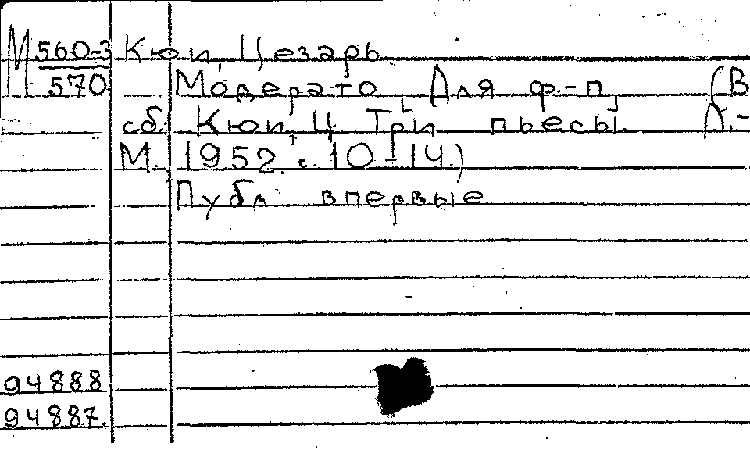 М 560-3 Кюи, Цезарь
570 Модерато [Для ф-п] (В
сб. Кюи, Ц. Три пьесы. Л.-
М. 1952. с. 10-14.)
Публ. впервые
94888
94887.